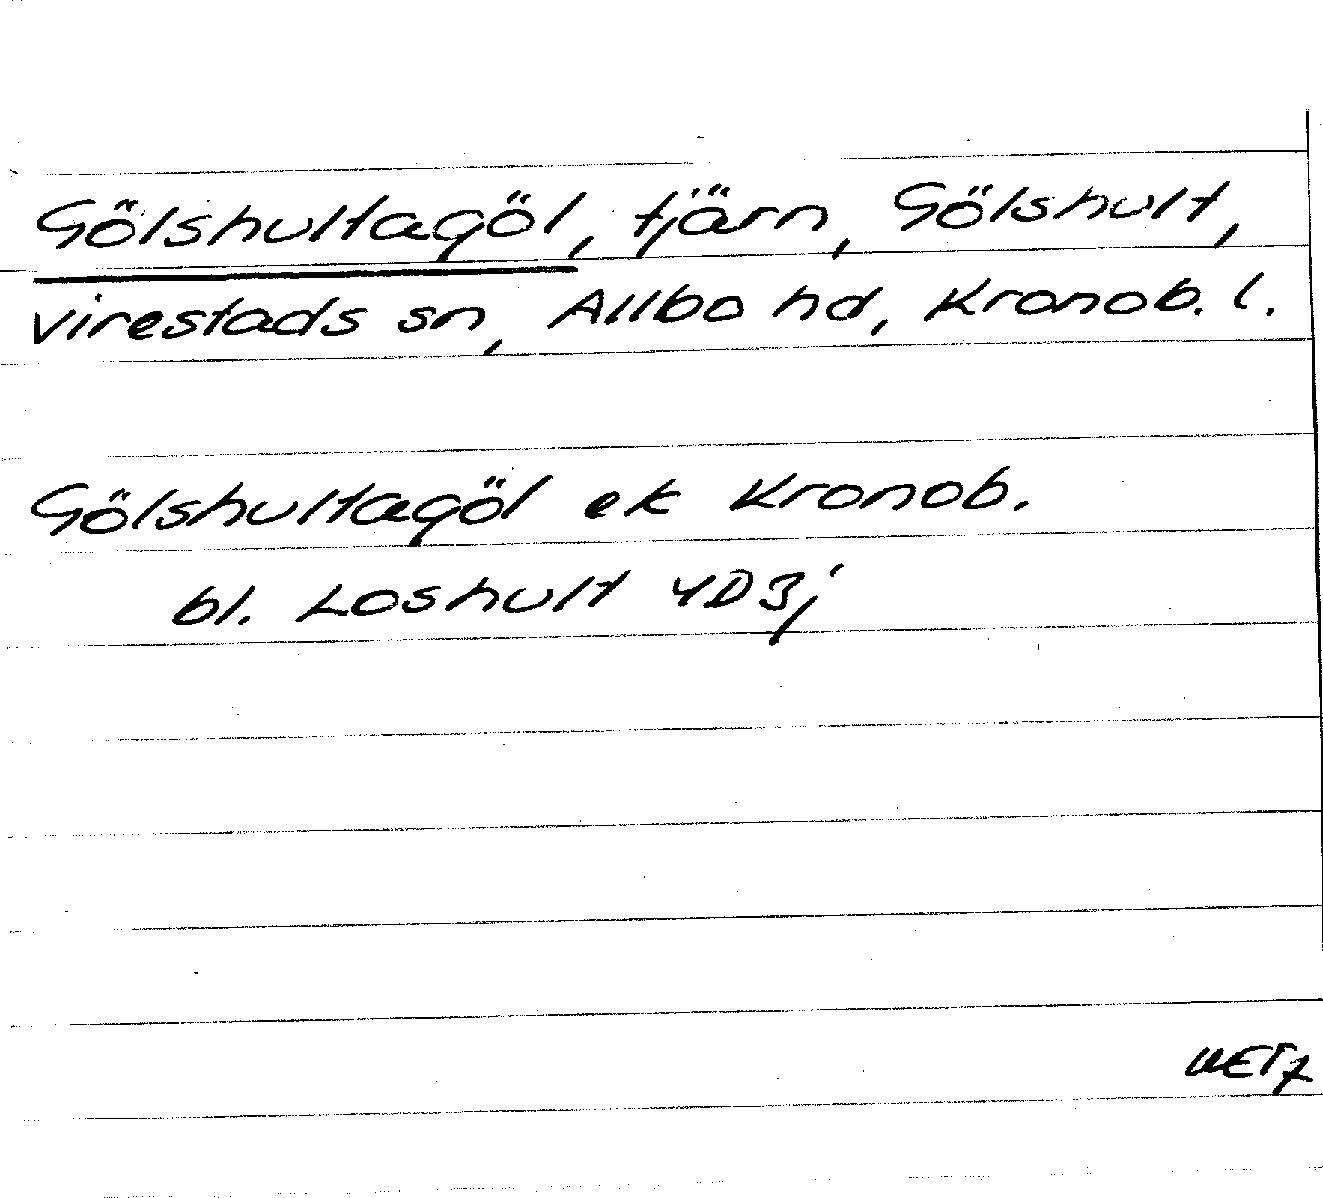 Gölshultagöl, tjärn, Gölshult,
Virestads sn, Allbo hd, Kronob. l.
Gölshultagöl ek Kronob.
bl. Loshult 4D3j